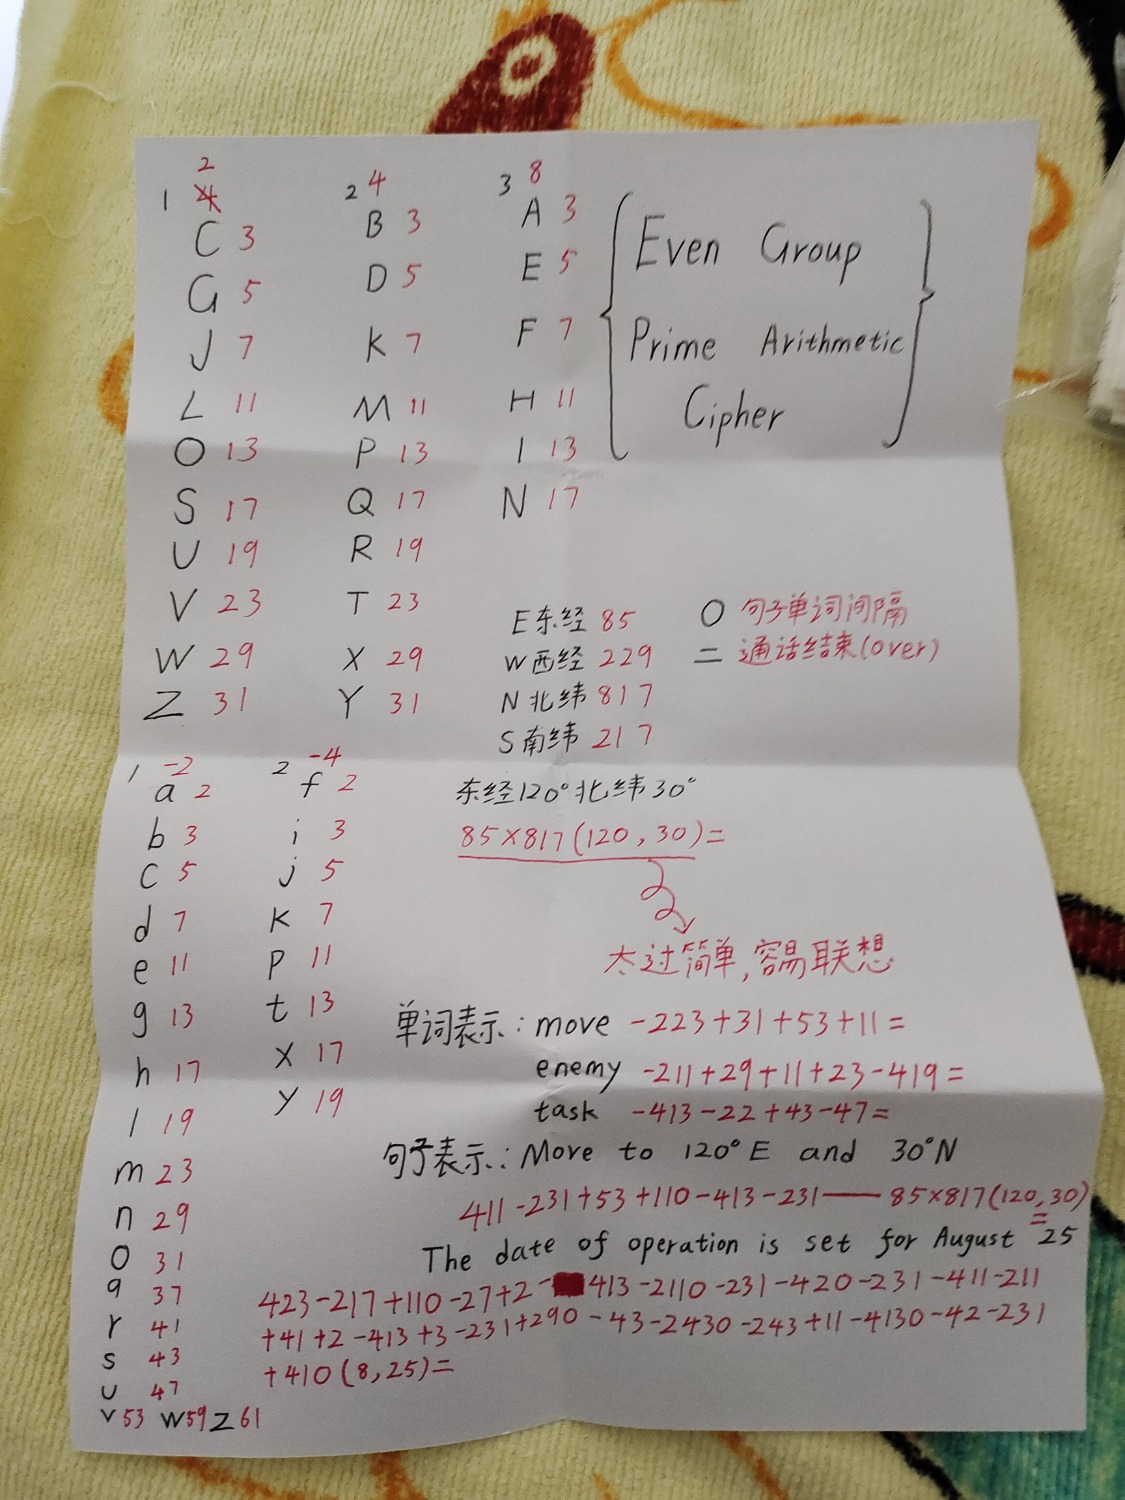 2
1 4
C 3
G 5
J 7
L 11
O 13
S 17
U 19
V 23
W 29
Z 31
2 4
B 3
D 5
K 7
M 11
P 13
Q 17
R 19
T 23
X 29
Y 31
3 8
A 3
E 5
F 7
H 11
I 13
N 17
Even Group
Prime Arithmetic
Cipher
E东经 85
W西经 229
N北纬 817
S南纬 217
O 句子单词间隔
= 通话结束(over)
1 -2
a 2
b 3
c 5
d 7
e 11
g 13
h 17
l 19
m 23
n 29
o 31
q 37
r 41
s 43
u 47
v 53 w 59 z 61
2 -4
f 2
i 3
j 5
k 7
p 11
t 13
x 17
y 19
东经120°北纬30°
85×817(120,30)=
太过简单,容易联想
单词表示: move -223+31+53+11=
enemy -211+29+11+23-419=
task -413-22+43-47=
句子表示: Move to 120°E and 30°N
411-231+53+110-413-231——85×817(120,30)
=
The date of operation is set for August 25
423-217+110-27+2-413-2110-231-420-231-411-211
+41+2-413+3-231+290-43-2430-243+11-4130-42-231
+410(8,25)=